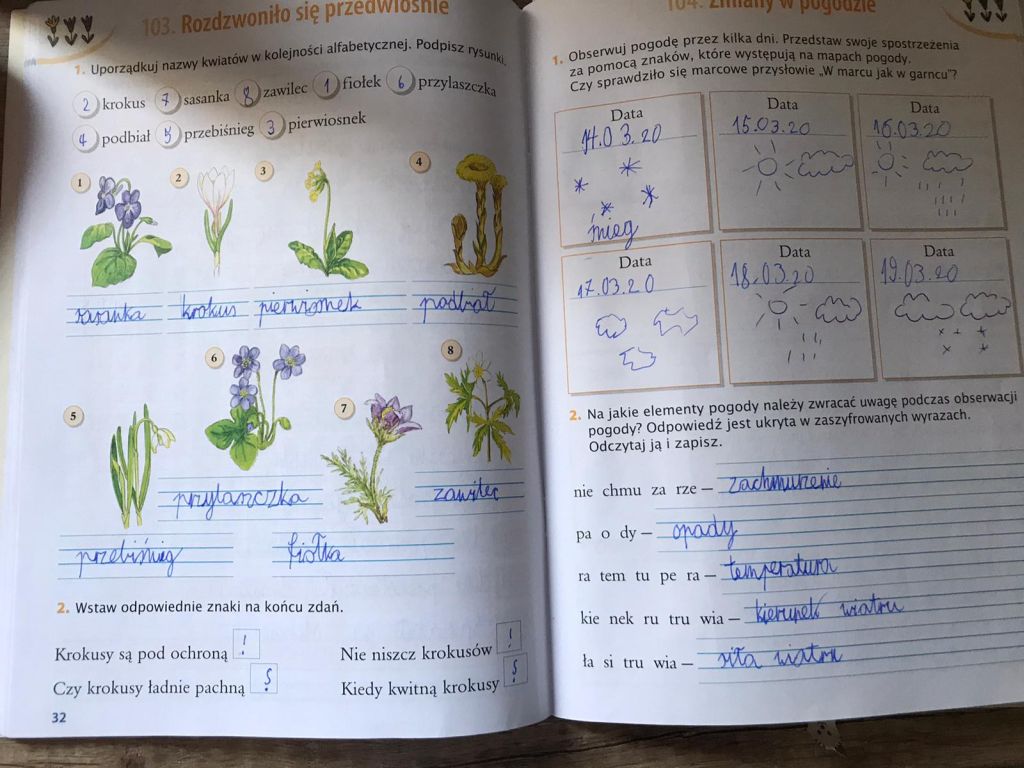 103. Rozdzwoniło się przedwiośnie
1. Uporządkuj nazwy kwiatów w kolejności alfabetycznej. Podpisz rysunki.
2 krokus 7 sasanka 8 zawilec 1 fiołek 6 przylaszczka
4 podbiał 5 przebiśnieg 3 pierwiosnek
1 2 3 4
sasanka krokus pierwiosnek podbiał
5 6 7 8
przylaszczka zawilec
przebiśnieg fiołka
2. Wstaw odpowiednie znaki na końcu zdań.
Krokusy są pod ochroną ! Nie niszcz krokusów !
Czy krokusy ładnie pachną ? Kiedy kwitną krokusy ?
32
104. Zmiany w pogodzie
1. Obserwuj pogodę przez kilka dni. Przedstaw swoje spostrzeżenia
za pomocą znaków, które występują na mapach pogody.
Czy sprawdziło się marcowe przysłowie „W marcu jak w garncu"?
Data Data Data
14.03.20 15.03.20 16.03.20
śnieg
Data Data Data
17.03.20 18.03.20 19.03.20
2. Na jakie elementy pogody należy zwracać uwagę podczas obserwacji
pogody? Odpowiedź jest ukryta w zaszyfrowanych wyrazach.
Odczytaj ją i zapisz.
nie chmu za rze – zachmurzenie
pa o dy – opady
ra tem tu pe ra – temperatura
kie nek ru tru wia – kierunek wiatru
ła si tru wia – siła wiatru